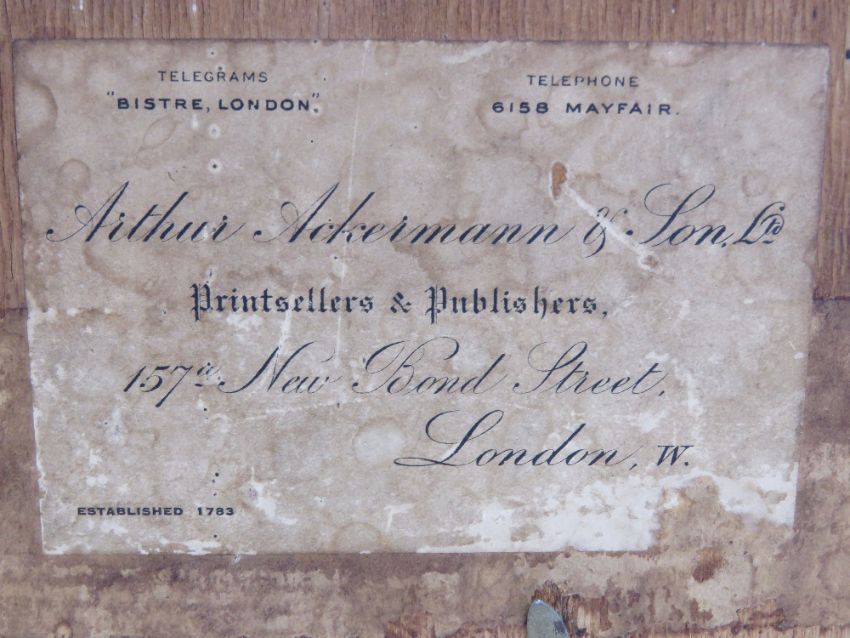 TELEGRAMS
"BISTRE, LONDON".
TELEPHONE
6158 MAYFAIR.
Arthur Ackermann & Son, Ltd
Printsellers & Publishers,
157a New Bond Street,
London, W.
ESTABLISHED 1783